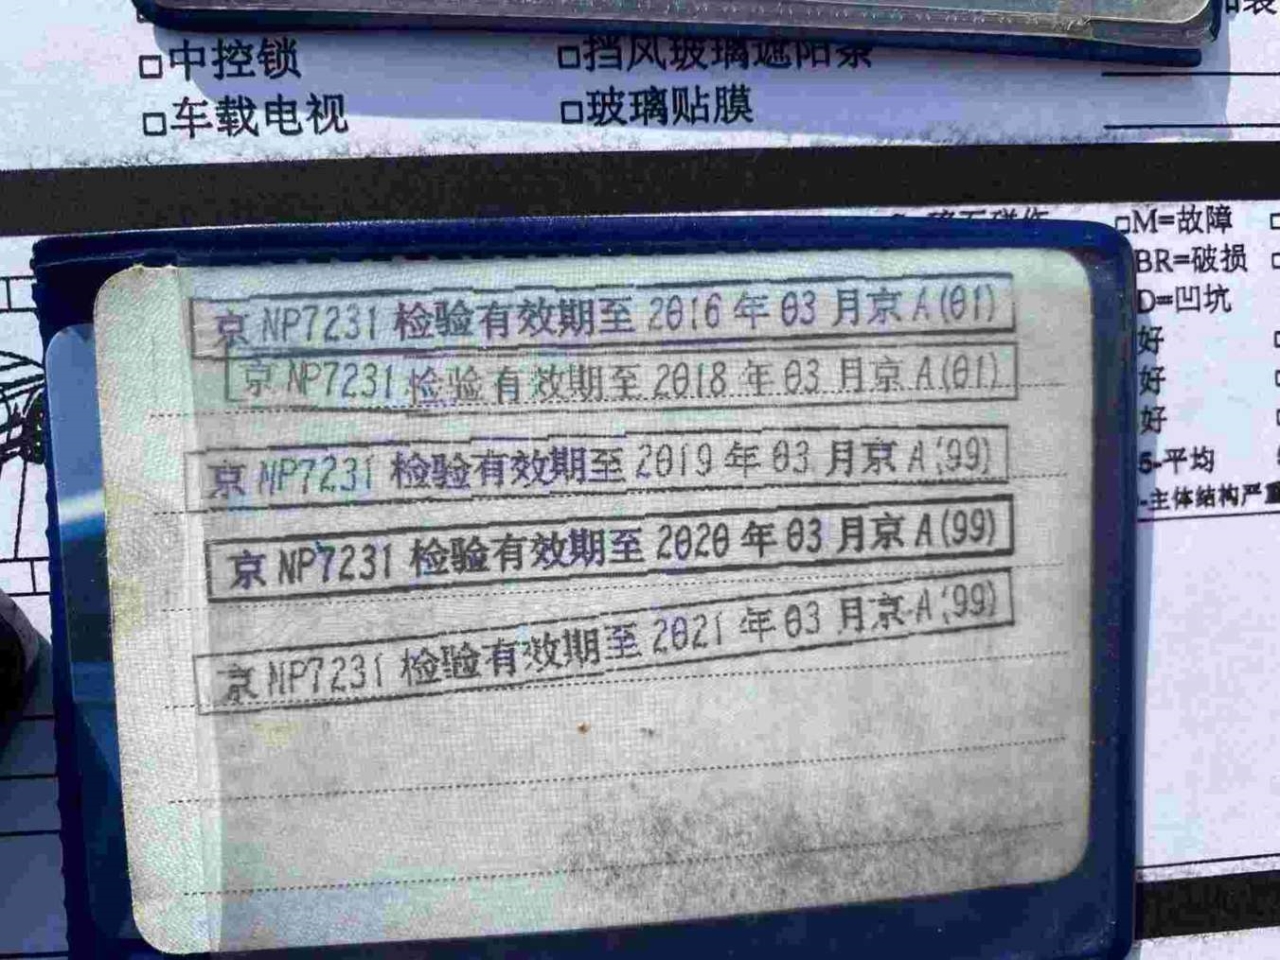 中控锁
挡风玻璃遮阳条
车载电视
玻璃贴膜
M=故障
BR=破损
D=凹坑
好
好
好
5-平均
-主体结构严重
京 NP7231 检验有效期至 2016 年 03 月京 A(01)
京 NP7231 检验有效期至 2018 年 03 月京 A(01)
京 NP7231 检验有效期至 2019 年 03 月京 A(99)
京 NP7231 检验有效期至 2020 年 03 月京 A(99)
京 NP7231 检验有效期至 2021 年 03 月京 A(99)